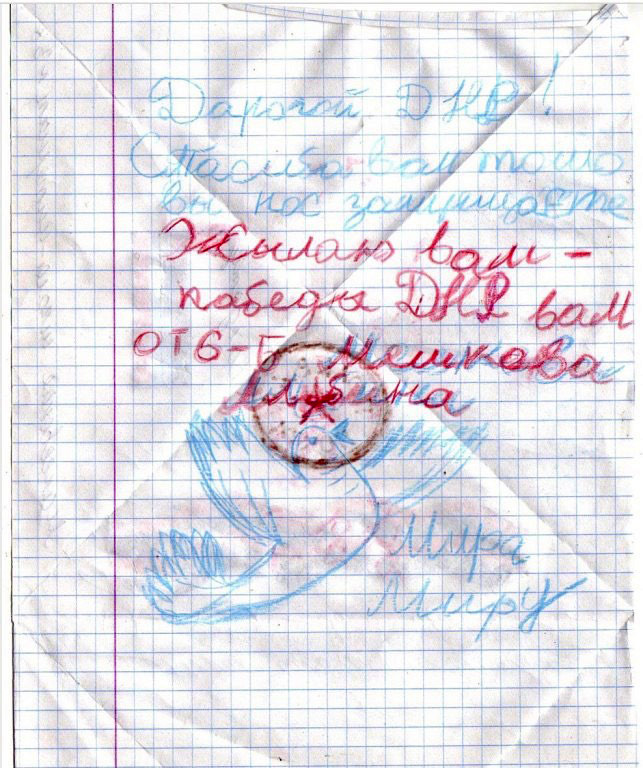 Дарогой ДНР!
Спасиба вам тошо
вы нас защищаете
Жылаю вам -
пабеды ДНР вам
от 6-Б Мешкова
Альбина
Мира
Миру